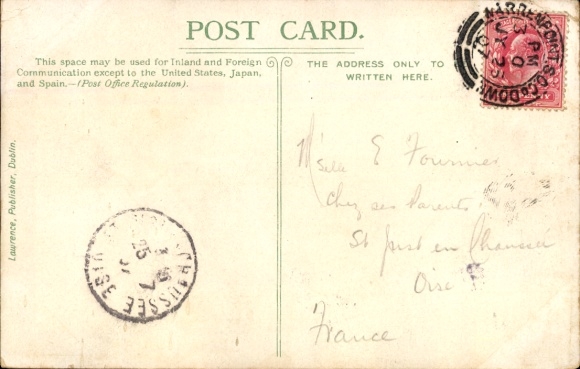 POST CARD.
This space may be used for Inland and Foreign
Communication except to the United States, Japan,
and Spain.—(Post Office Regulation).
THE ADDRESS ONLY TO
WRITTEN HERE.
WARRENPOINT S.O. Co DOWN
PM
Lawrence, Publisher, Dublin.
Mselle E Fournier
Chez ses Parents
St Just en Chaussée
Oise
France
CHAUSSEE
25